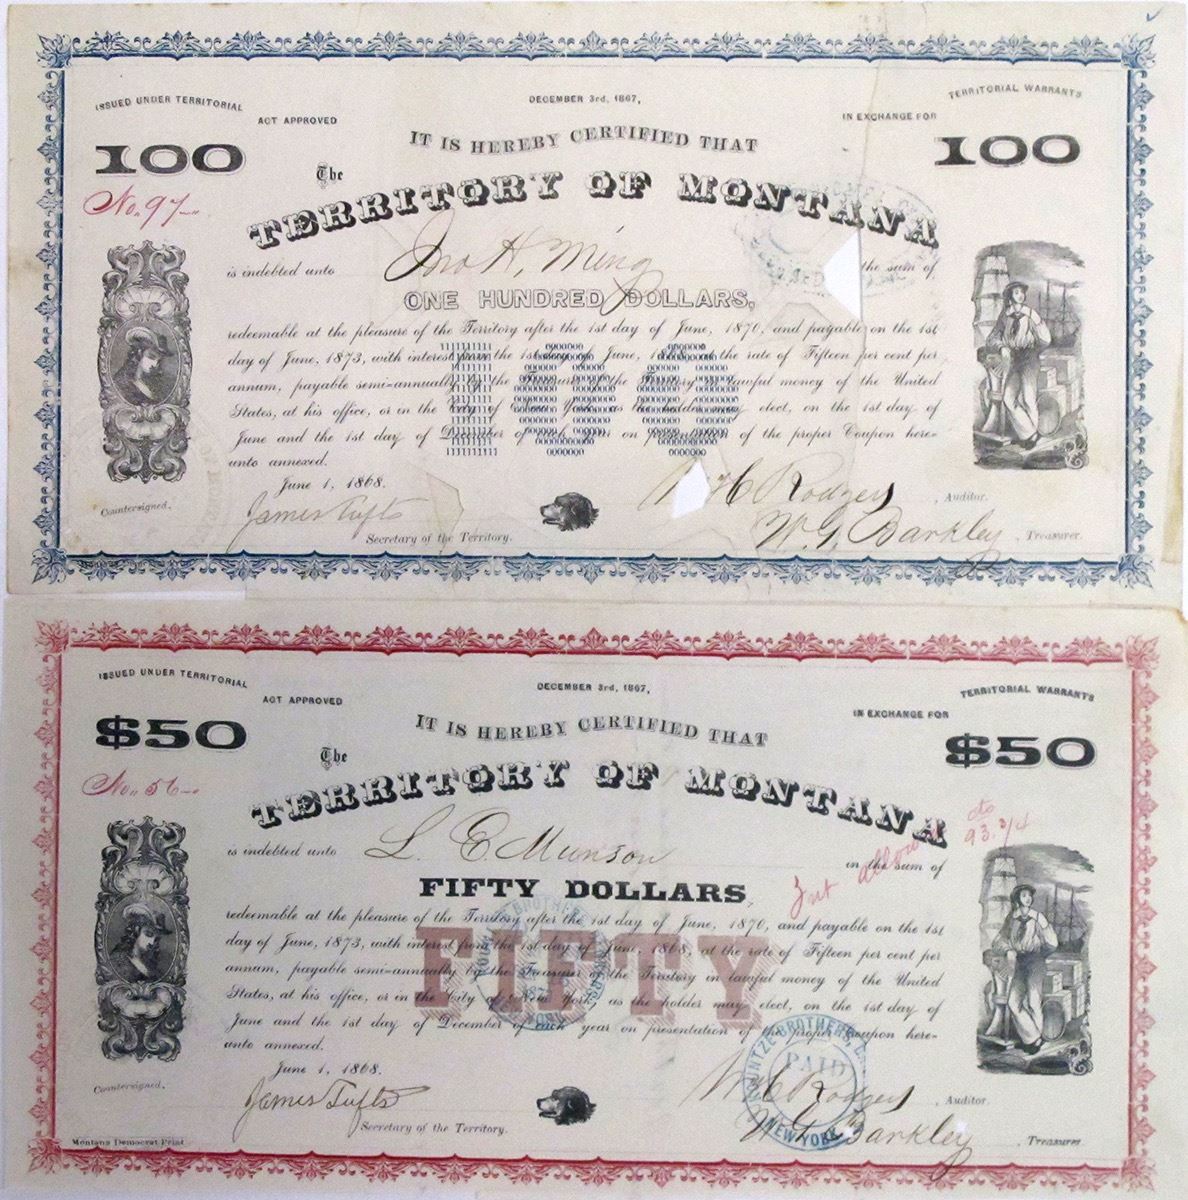 ISSUED UNDER TERRITORIAL
ACT APPROVED
DECEMBER 3rd, 1867,
IN EXCHANGE FOR
TERRITORIAL WARRANTS
100
IT IS HEREBY CERTIFIED THAT
100
No. 97
The
TERRITORY OF MONTANA
is indebted unto Jno H. Ming the sum of
ONE HUNDRED DOLLARS,
redeemable at the pleasure of the Territory after the 1st day of June, 1870, and payable on the 1st
day of June, 1873, with interest from the 1st day of June, at the rate of Fifteen per cent per
annum, payable semi-annually by the Treasurer of the Territory in lawful money of the United
States, at his office, or in the City of New York, as the holder may elect, on the 1st day of
June and the 1st day of December of each year on presentation of the proper Coupon here-
unto annexed.
100
June 1, 1868.
Countersigned,
James Tufts
Secretary of the Territory.
W H Rodgers, Auditor.
W. G. Barkley, Treasurer.
ISSUED UNDER TERRITORIAL
ACT APPROVED
DECEMBER 3rd, 1867,
IN EXCHANGE FOR
TERRITORIAL WARRANTS
$50
IT IS HEREBY CERTIFIED THAT
$50
No. 56
The
TERRITORY OF MONTANA
to
93.3/4
Int allow
is indebted unto L. E. Munson in the sum of
FIFTY DOLLARS,
redeemable at the pleasure of the Territory after the 1st day of June, 1870, and payable on the 1st
day of June, 1873, with interest from the 1st day of June, 1868, at the rate of Fifteen per cent per
annum, payable semi-annually by the Treasurer of the Territory in lawful money of the United
States, at his office, or in the City of New York, as the holder may elect, on the 1st day of
June and the 1st day of December of each year on presentation of the proper Coupon here-
unto annexed.
FIFTY
KOUNTZE BROTHERS
PAID
NEW YORK
June 1, 1868.
Countersigned,
James Tufts
Secretary of the Territory.
W H Rodgers, Auditor.
W G Barkley, Treasurer.
Montana Democrat Print